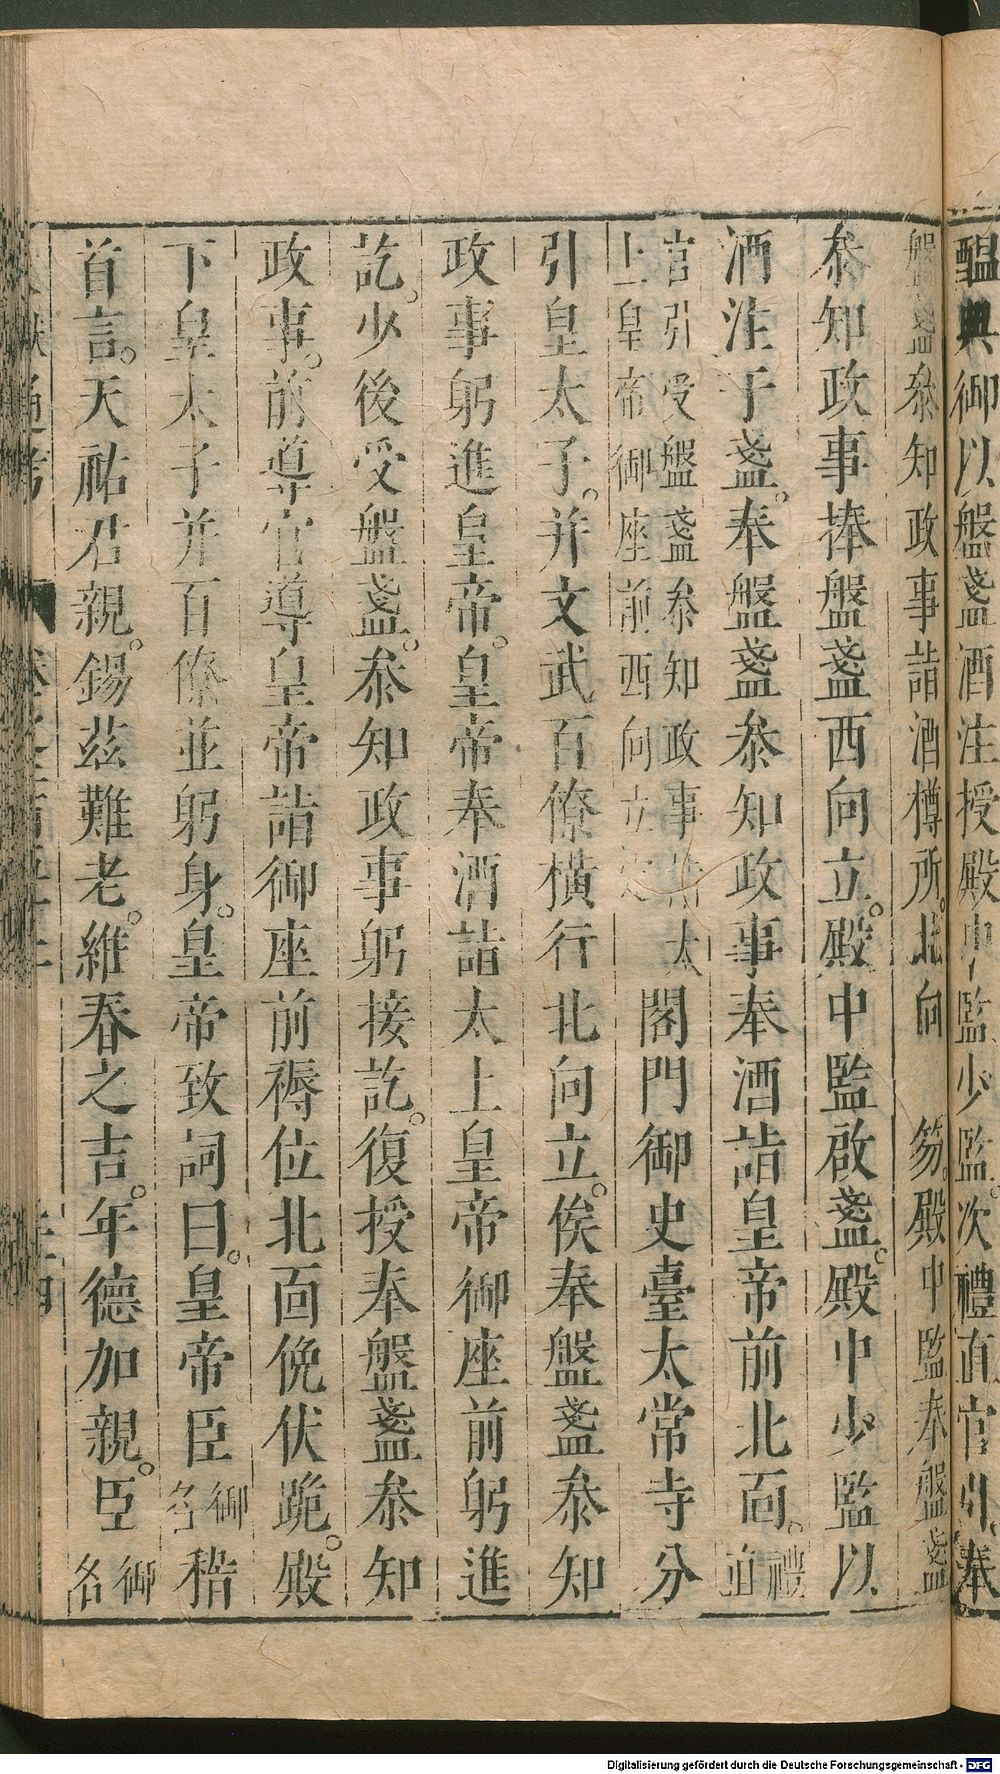 醖典御以盤盞酒注授殿中監少監次禮直官引奉
盤盞叅知政事詣酒樽所北向 笏殿中監奉盤盞
叅知政事捧盤盞西向立殿中監啟盞殿中少監以
酒注于盞奉盤盞叅知政事奉酒詣皇帝前北面禮直
官引受盤盞叅知政事 太
上皇帝御座前西向立
閤門御史臺太常寺分
引皇太子并文武百僚橫行北向立俟奉盤盞叅知
政事躬進皇帝皇帝奉酒詣太上皇帝御座前躬進
訖少後受盤盞叅知政事躬接訖復授奉盤盞叅知
政事前導官導皇帝詣御座前褥位北面俛伏跪殿
下皇太子并百僚並躬身皇帝致詞曰皇帝臣御名稽
首言天祐君親錫茲難老維春之吉年德加親臣御名
Digitalisierung gefördert durch die Deutsche Forschungsgemeinschaft - DFG